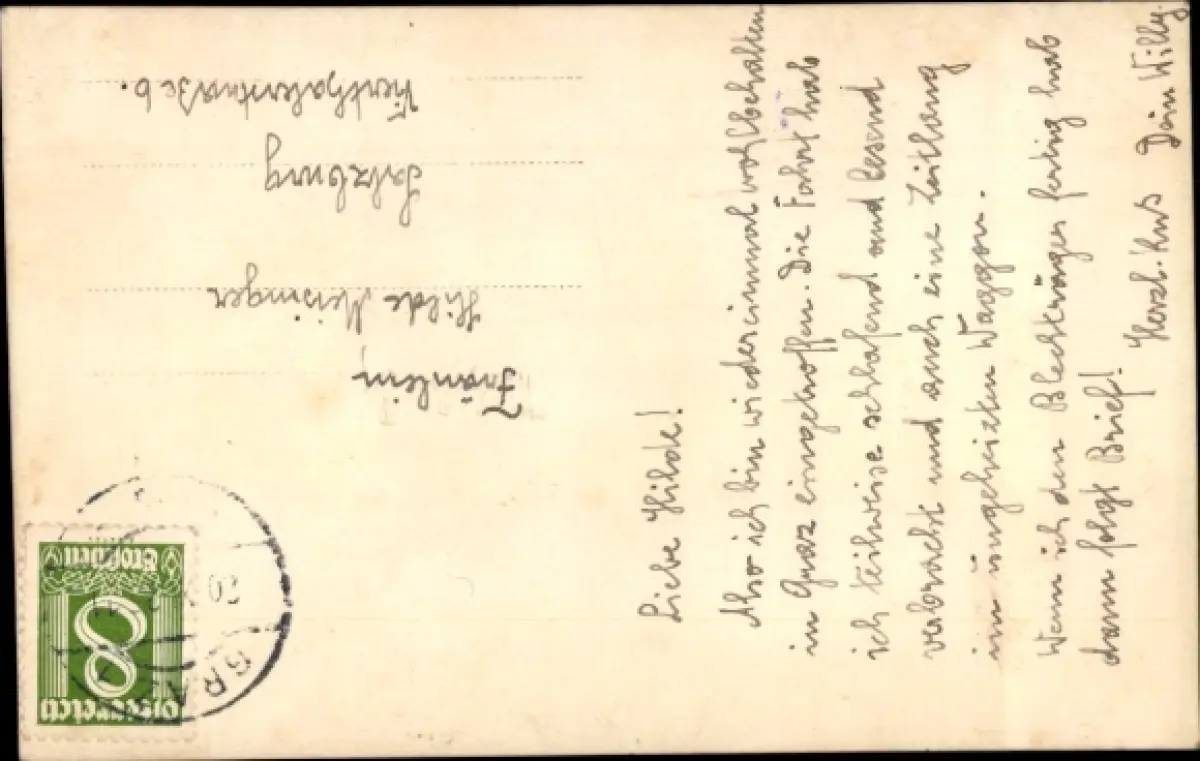 Liebe Hilde!
Also ich bin wieder einmal wohlbehalten
in Graz eingetroffen. Die Fahrt hab
ich teilweise schlafend und lesend
verbracht und auch eine Zeitlang
im ungeheizten Waggon.
Wenn ich den Blechkrägen fertig hab
dann folgt Brief!
Herzl. Kuss Dein Willy.
Fräulein
Hilde Meisinger
Salzburg
6.
Österreich
8
Groschen
GRAZ